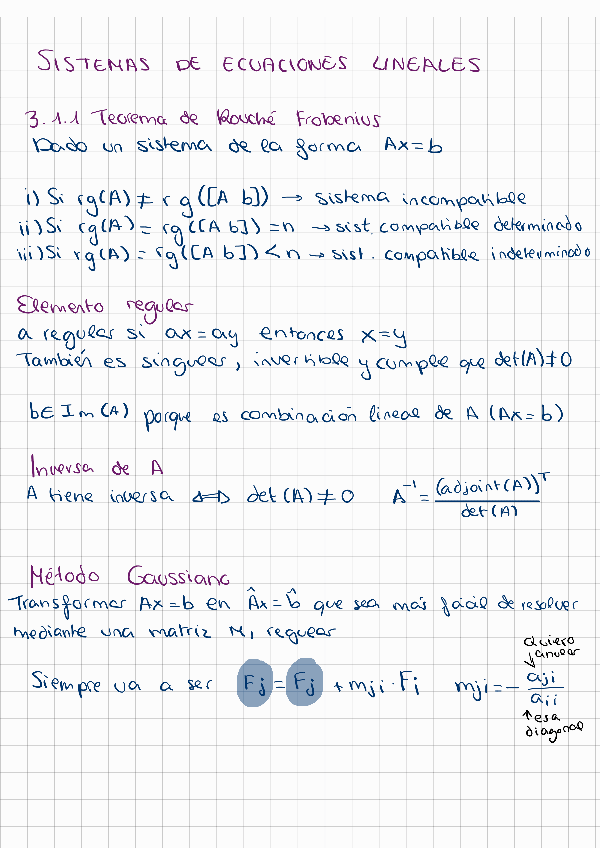 SISTEMAS DE ECUACIONES LINEALES
3.1.1 Teorema de Rouché Frobenius
Dado un sistema de la forma Ax=b
i) Si rg(A) ≠ rg([A b]) → sistema incompatible
ii) Si rg(A) = rg([A b]) = n → sist. compatible determinado
iii) Si rg(A) = rg([A b]) < n → sist. compatible indeterminado
Elemento regular
a regular si ax=ay entonces x=y
También es singular, invertible y cumple que det(A)≠0
b∈Im(A) porque es combinación lineal de A (Ax=b)
Inversa de A
A tiene inversa ⇔ det(A) ≠ 0 A⁻¹ = (adjoint(A))ᵀ / det(A)
Método Gaussiano
Transformar Ax=b en Âx=b̂ que sea más fácil de resolver
mediante una matriz M, regular
Quiero
anular
Siempre va a ser Fj = Fj + mji · Fi mji = - aji / aii
↑ esa
diagonal